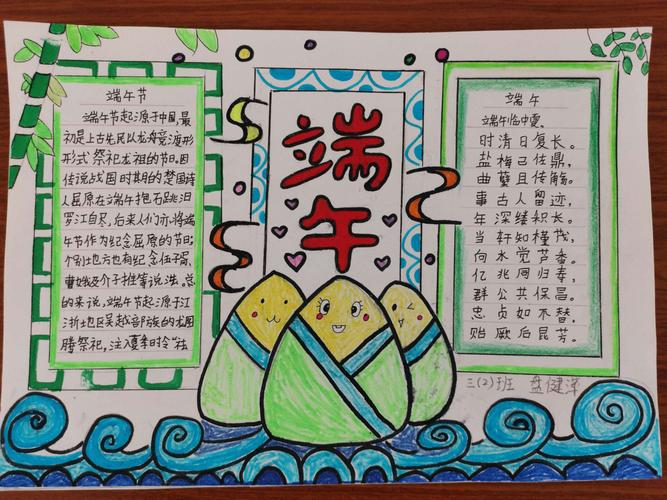 端午节
端午节起源于中国,最
初是上古先民以龙舟竞渡形
形式祭祀龙祖的节日。因
传说战国时期的楚国诗
人屈原在端午抱石跳汨
罗江自尽,后来人们亦将端
午节作为纪念屈原的节日;
个别地方也有纪念伍子胥、
曹娥及介子推等说法。总
的来说,端午节起源于江
浙地区吴越部族的龙图
腾祭祀,注入夏季时令“祛
端午
端午
端午临中夏,
时清日复长。
盐梅已佐鼎,
曲糵且传觞。
事古人留迹,
年深缕积长。
当轩知槿茂,
向水觉芦香。
亿兆同归寿,
群公共保昌。
忠贞如不替,
贻厥后昆芳。
三(2)班 盘健泽